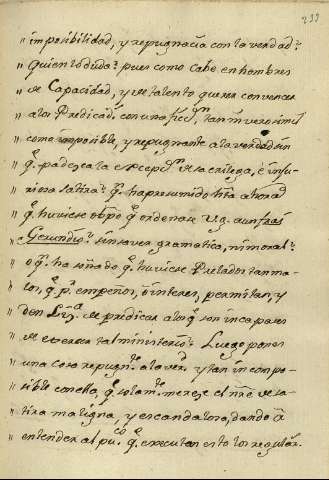 233
" imposibilidad, y repugnacia con la verdad?
" Quien lo duda? pues como cabe en hombres
" de Capacidad, y de talento querer convencer
" a los Predicad.s con una ficc.n tan inverosimil
" como imposible, y repugnante a la verdad sin
" q.e padezca la excepc.n de sacrilega, è inju-
" riosa satira? q.n ha presumido hta ahora
" q.e huviese obpo q.e ordenase v.g. a un frai
" Gerundio? sin saver gramatica, ni moral?
" o q.n ha soñado q.e huviese Prelados tan ma-
" los, q.e p.r empeños, ò interes, permitan, y
" den Liz.a de predicar a los q.e son incapaces
" de exercer tal ministerio? Luego pones
" una cosa repugn.te a la ver.d y tan incompo-
" sible con ella, q.e solam.te merece el nre de sa-
" tira maligna, y escandalosa, dando à
" entender al pu.co q.e executan esto los regular.s